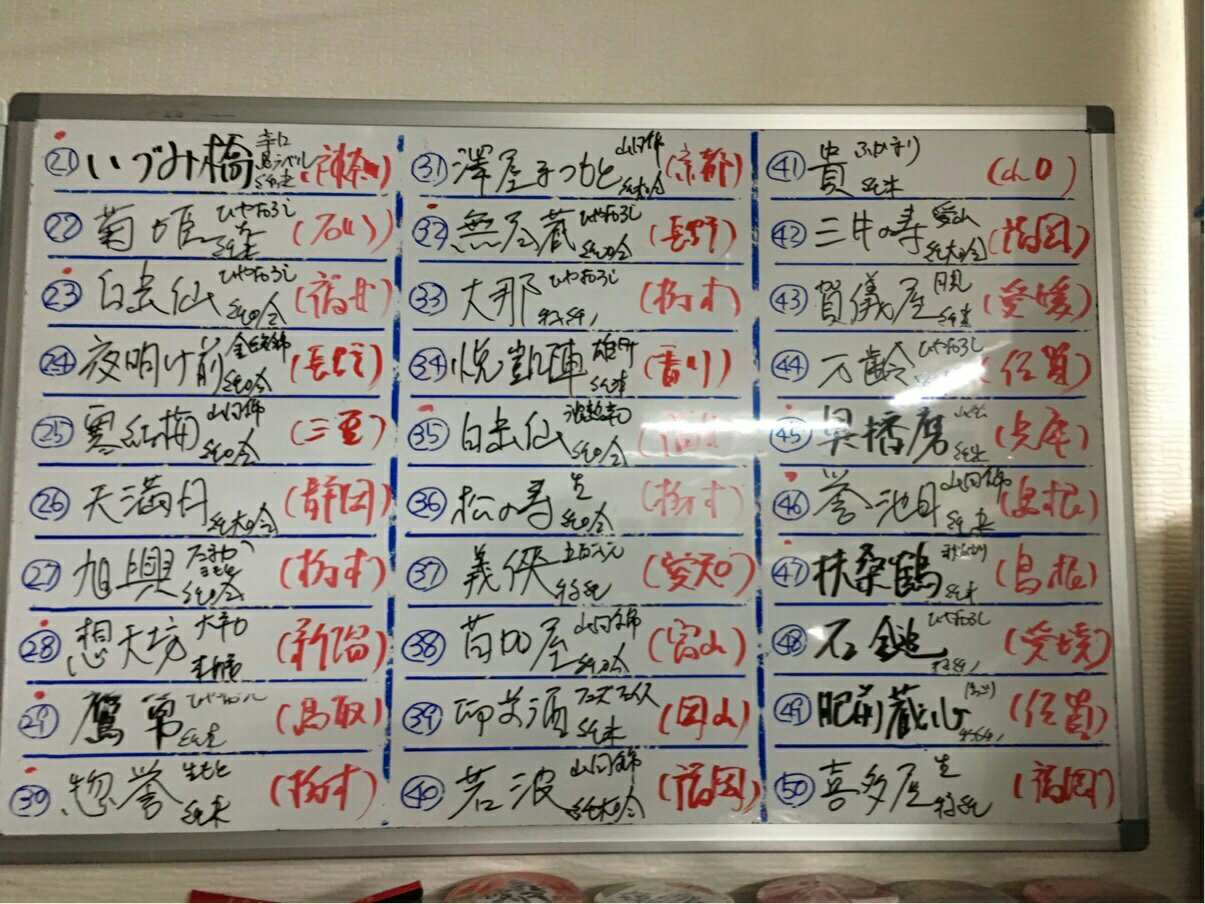 ㉑ いづみ橋 辛口 純米
㉒ 菊姫 ひやおろし 純米 (石川)
㉓ 白岳仙 ひやおろし 純吟 (福井)
㉔ 夜明け前 純吟 (長野)
㉕ 寒紅梅 山田錦 純吟 (三重)
㉖ 天満月 純大吟 (静岡)
㉗ 旭興 たまか きもと 純吟 (栃木)
㉘ 想天坊 大辛口 (新潟)
㉙ 鷹勇 純米 (鳥取)
㉚ 惣誉 生もと 純米 (栃木)
㉛ 澤屋まつもと 山田錦 純大吟 (京都)
㉜ 無尽蔵 ひやおろし 純吟 (長野)
㉝ 大那 ひやおろし 特純 (栃木)
㉞ 悦凱陣 雄町 純米 (香川)
㉟ 白岳仙 純吟 (福井)
㊱ 松の寿 生 純吟 (栃木)
㊲ 義侠 五百万石 特純 (愛知)
㊳ 苗加屋 山田錦 純吟 (富山)
㊴ 御前酒 純米 (岡山)
㊵ 若波 山田錦 純大吟 (福岡)
㊶ 貴 純米 (山口)
㊷ 三井の寿 愛山 純大吟 (福岡)
㊸ 賀儀屋 月見 純米 (愛媛)
㊹ 万齢 ひやおろし (佐賀)
㊺ 奥播磨 山廃 純米 (兵庫)
㊻ 誉池月 山田錦 純米 (島根)
㊼ 扶桑鶴 純米 (島根)
㊽ 石鎚 ひやおろし 特純 (愛媛)
㊾ 肥前蔵心 (佐賀)
㊿ 喜多屋 生 特純 (福岡)